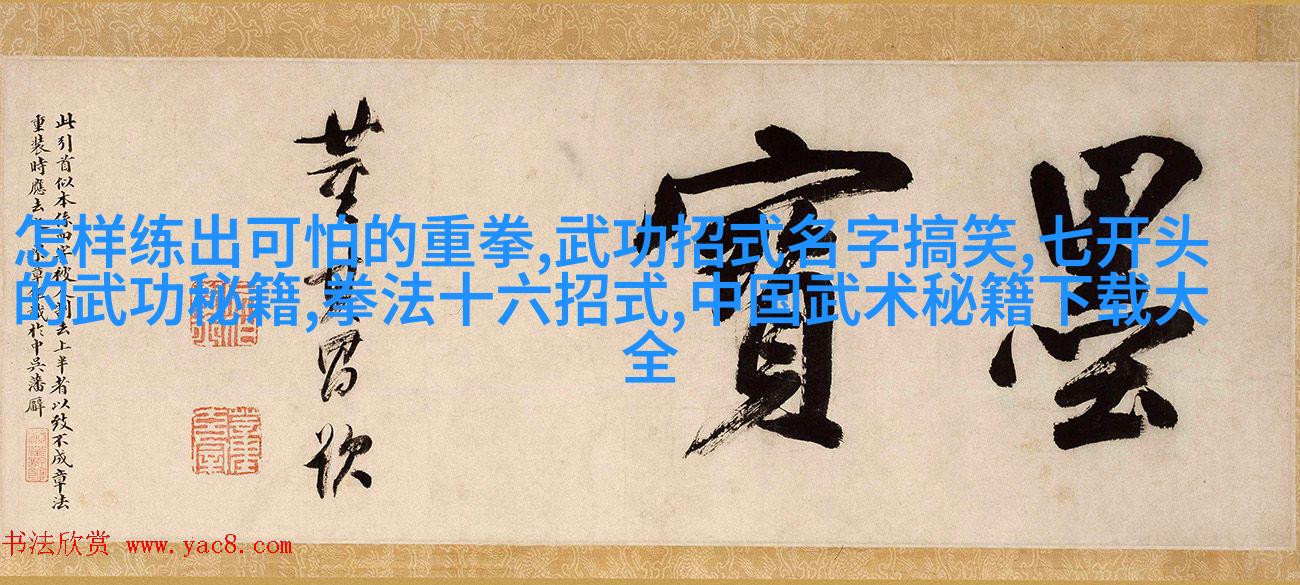 怎样练出可怕的重拳,武功招式名字搞笑,七开头
的武功秘籍,拳法十六招式,中国武术秘籍下载大
全
墨寶
董其昌
此引首似本後四字被割去上半者以致不成章法
重裝時應去章於中吳潘
书法欣赏 www.yac8.com